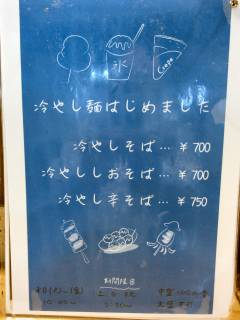 氷
Crepe
冷やし麺はじめました
冷やしそば… ¥700
冷やししおそば… ¥700
冷やし辛そば… ¥750
期間限定